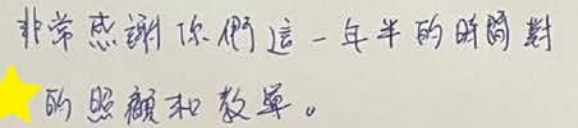 非常感謝你們這一年半的時間對
的照顧和教學。